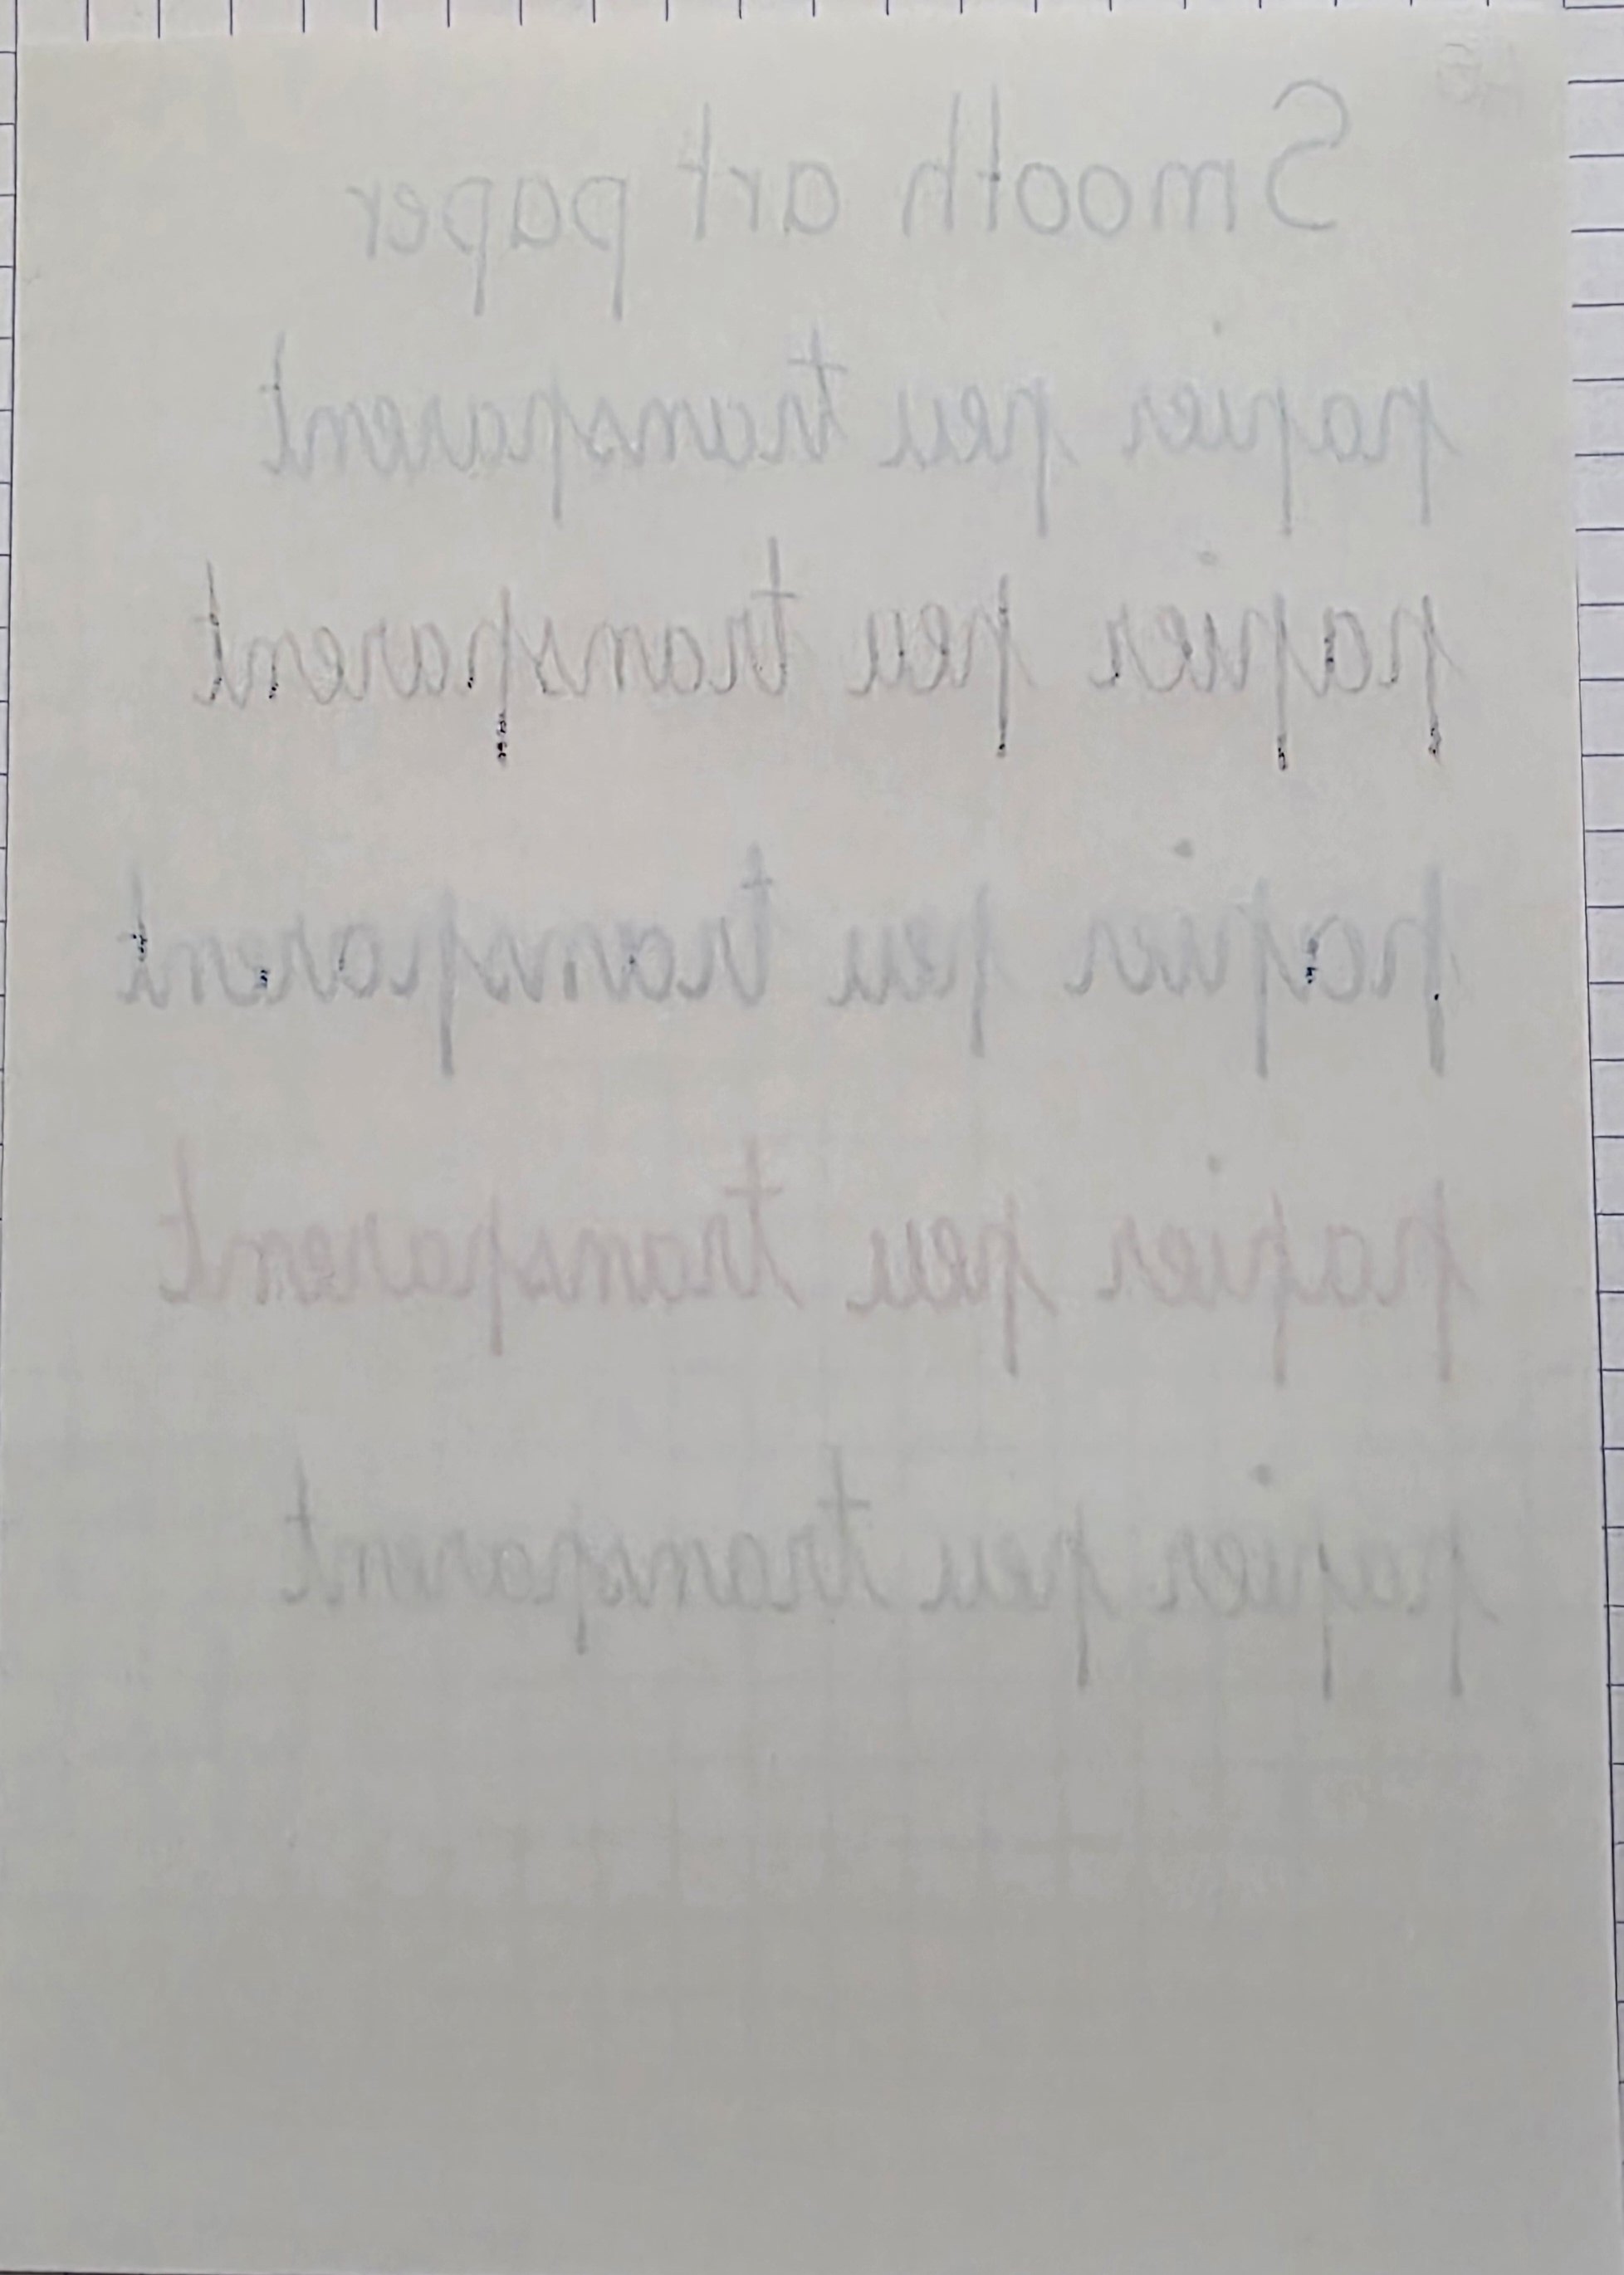 Smooth art paper
papier peu transparent
papier peu transparent
papier peu transparent
papier peu transparent
papier peu transparent